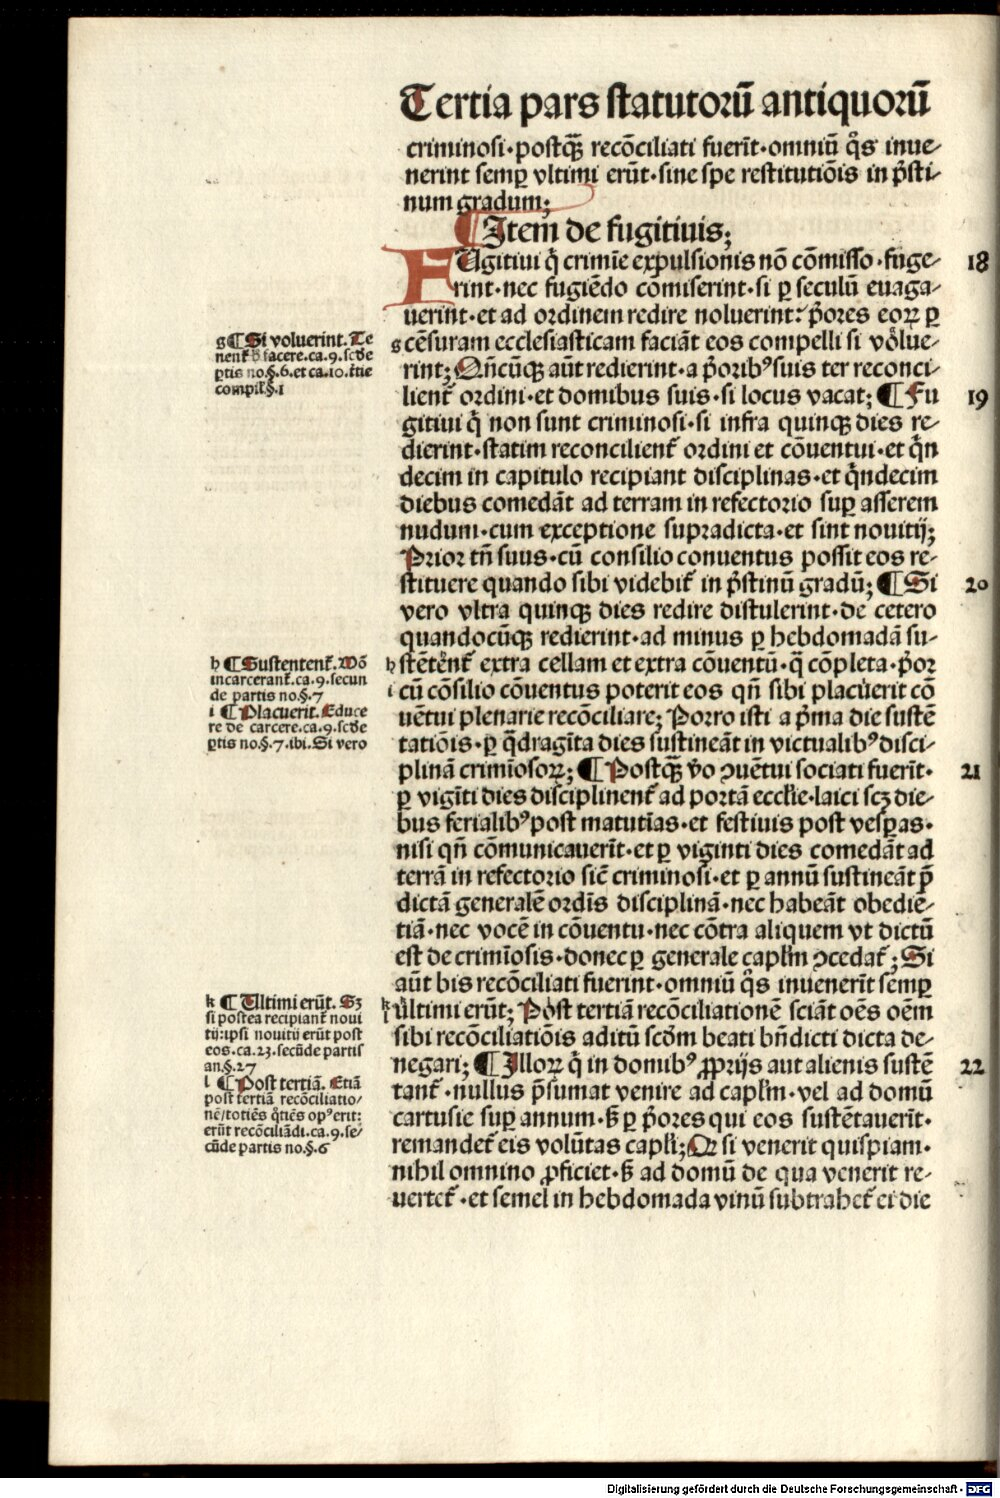 Tertia pars statutorū antiquorū
criminosi·postqꝫ̄ recōciliati fuerīt·omniū q̄s inue-
nerint semꝑ vltimi erūt·sine spe restitutiōis in p̄sti-
num gradum;
¶Item de fugitiuis;
FUgitiui q̄ crimīe expulsionis nō cōmisso·fuge- 18
rint·nec fugiēdo cōmiserint·si ꝑ seculū euaga-
uerint·et ad ordinem redire noluerint: p̄ores eoꝝ ꝑ
g cēsuram ecclesiasticam faciāt eos compelli si volue-
rint; Qn̄cūqꝫ aūt redierint·a p̄oribꝰ suis ter reconci-
lient̄ ordini·et domibus suis·si locus vacat; ¶Fu 19
gitiui q̄ non sunt criminosi·si infra quinqꝫ dies re-
dierint·statim reconcilient̄ ordini et cōuentui·et q̄n
decim in capitulo recipiant disciplinas·et q̄ndecim
diebus comedāt ad terram in refectorio suꝑ asserem
nudum·cum exceptione supradicta·et sint nouitij;
Prior tn̄ suus·cū consilio conuentus possit eos re-
stituere quando sibi videbit̄ in p̄stinū gradū; ¶Si 20
vero vltra quinqꝫ dies redire distulerint·de cetero
quandocūqꝫ redierint·ad minus ꝑ hebdomadā su-
h stētēnt̄ extra cellam et extra cōuentū·q̄ cōpleta·p̄or
i cū cōsilio conuentus poterit eos qn̄ sibi placuerit cō
uētui plenarie recōciliare; Porro isti a p̄ma die sustē
tatiōis·ꝑ q̄dragīta dies sustineāt in victualibꝰ disci-
plinā crimīosoꝝ; ¶Postqꝫ̄ v̄o ꝯuētui sociati fuerīt· 21
ꝑ vigīti dies disciplinent̄ ad portā ecclīe·laici scꝫ die-
bus ferialibꝰ post matutīas·et festiuis post vesꝑas·
nisi qn̄ cōmunicauerīt·et ꝑ viginti dies comedāt ad
terrā in refectorio sic̄ criminosi·et ꝑ annū sustineāt p̄
dictā generalē ordīs disciplinā·nec habeāt obediē-
tiā·nec vocē in cōuentu·nec cōtra aliquem vt dictū
est de crimīosis·donec ꝑ generale capl̄m ꝯcedat̄; Si
aūt bis recōciliati fuerint·omniū q̄s inuenerīt semꝑ
k l vltimi erūt; Post tertiā recōciliationē sciāt oēs oēm
sibi recōciliatiōis aditū scd̄m beati bn̄dicti dicta de-
negari; ¶Illoꝝ q̄ in domibꝰ ꝓprijs aut alienis sustē 22
tant̄·nullus p̄sumat venire ad capl̄m·vel ad domū
cartusie suꝑ annum·s̄ ꝑ p̄ores qui eos sustētauerīt·
remandet̄ eis volūtas capl̄i; Qꝛ si venerit quispiam·
nihil omnino ꝓficiet·s̄ ad domū de qua venerit re-
uertet̄·et semel in hebdomada vinū subtrahet̄ ei die
g ¶Si voluerint. Te
nent̄ h̄ facere.ca.9.scd̄e
ꝑtis no.§.6.et ca.10.t̄tie
compil̄.§.1
h ¶Sustentent̄. Mō
incarcerant̄.ca.9.secun
de partis no.§.7
i ¶Placuerit. Educe
re de carcere.ca.9.scd̄e
ꝑtis no.§.7.ibi.Si vero
k ¶Ultimi erūt. Sꝫ
si postea recipiant̄ noui
tij:ipsi nouitij erūt post
eos.ca.23.secūde partis
an.§.27
l ¶Post tertiā. Etiā
post tertiā recōciliatio-
nē/totiēs q̄tiēs opꝰ erit:
erūt recōciliādi.ca.9.se-
cūde partis no.§.6
Digitalisierung gefördert durch die Deutsche Forschungsgemeinschaft · DFG